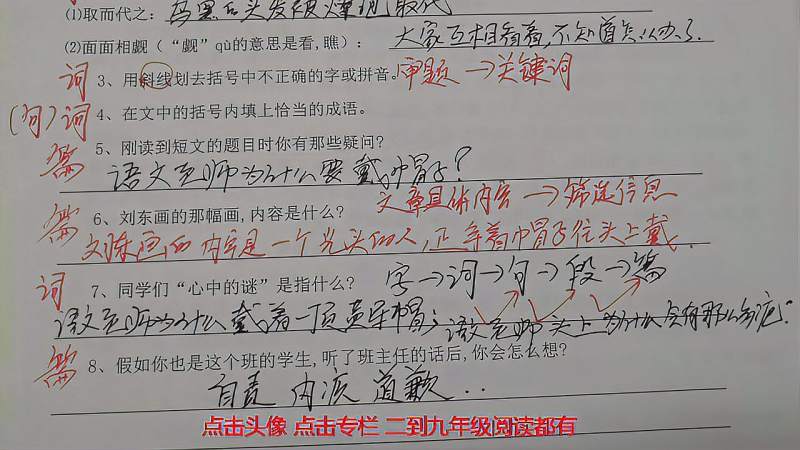 ⑴取而代之：乌黑的头发被燥疤取代
⑵面面相觑（“觑”qù的意思是看,瞧）： 大家互相看着,不知道怎么办了.
词 3、用斜线划去括号中不正确的字或拼音。审题→关键词
(句)词 4、在文中的括号内填上恰当的成语。
5、刚读到短文的题目时你有那些疑问?
篇 语文老师为什么要戴帽子?
文章具体内容→筛选信息
篇 6、刘东画的那幅画,内容是什么?
画的内容是一个光头的人,正拿着帽子往头上戴.
词 7、同学们“心中的谜”是指什么? 字→词→句→段→篇
语文老师为什么戴着一顶黄军帽;语文老师头上为什么会有那么多疤.
篇 8、假如你也是这个班的学生,听了班主任的话后,你会怎么想?
自责 内疚 道歉..
点击头像 点击专栏 二到九年级阅读都有